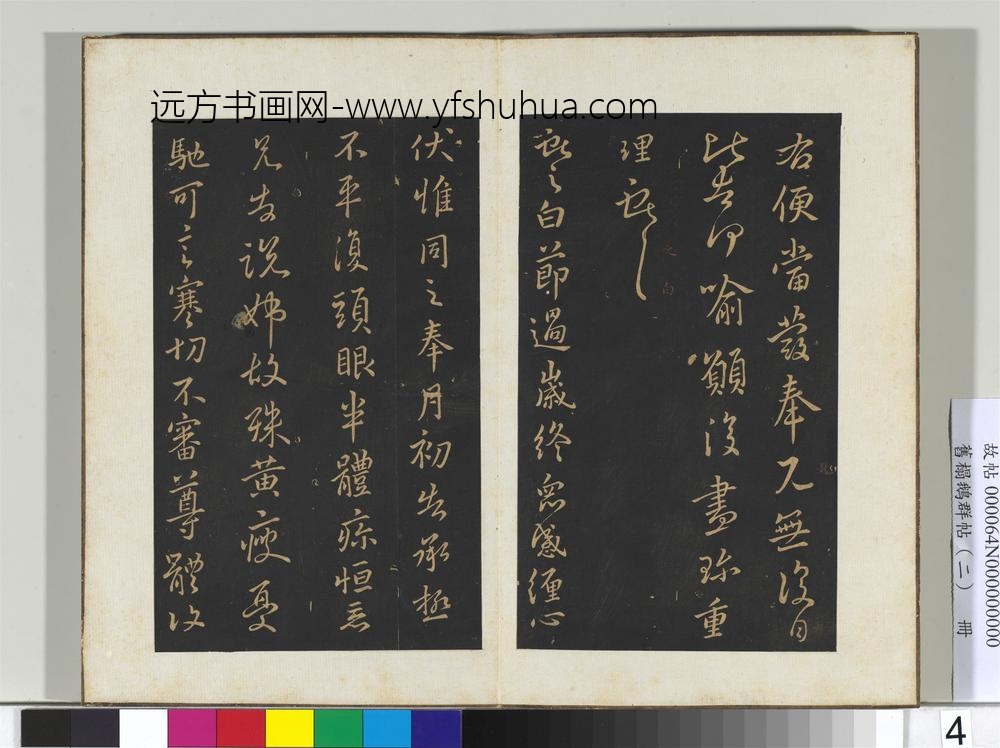 远方书画网-www.yfshuhua.com
右便當發奉兄無復日
比告何喻願復盡珍重
理
之
白
獻之白節過歲終衆感纏心
伏惟同之奉月初告承極
不平復頭眼半體疼恒惡
兄告說姊故殊黃瘦憂
馳可言寒切不審尊體復
故帖 000064N000000000
舊榻鵝群帖（二） 冊
4